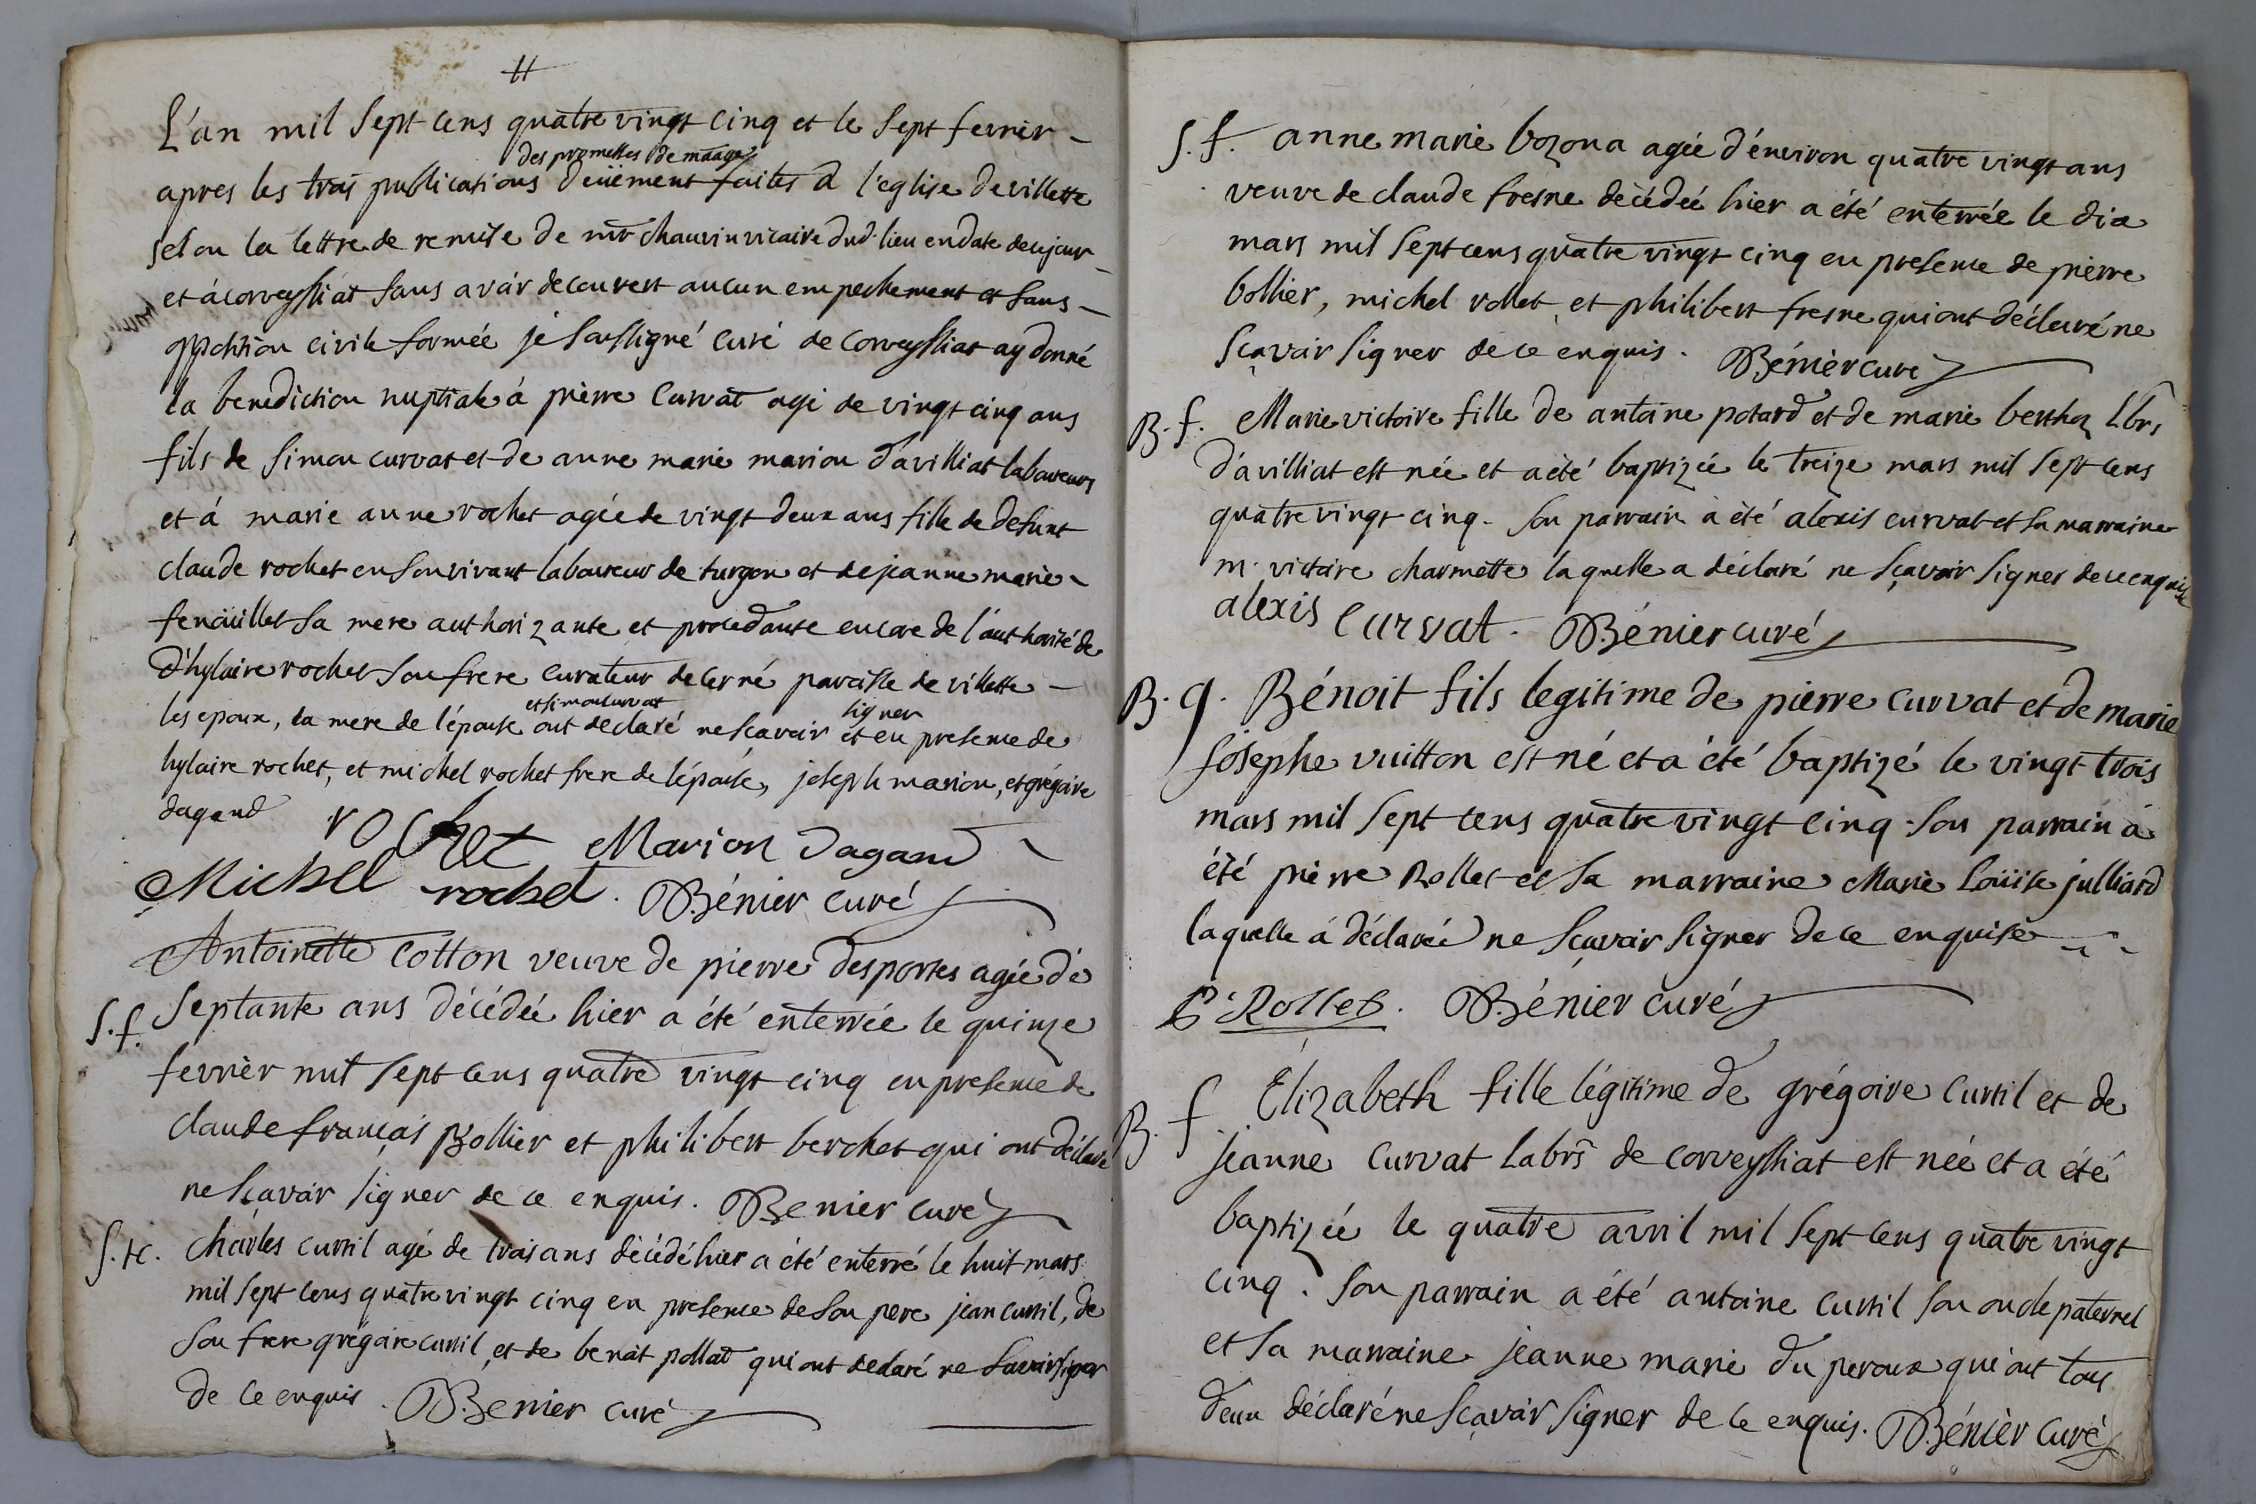 L'an mil sept cens quatre vingt cinq et le sept fevrier
des promesses de maage
apres les trois publications deüement faites a l'eglise de villette
selon la lettre de remise de mr chauvin vicaire dud. lieu en date de ce jour
et à corveyssiat sans avoir decouvert aucun empechement et sans
opposition civile formée je soussigné curé de Corveyssiat ay donné
la benediction nuptiale à pierre Curvat agé de vingt cinq ans
fils de simon curvat et de anne marie marion d'avilliat laboureurs
et à marie anne rochet agée de vingt deux ans fille de defunt
claude rochet en son vivant laboureur de turgon et de jeanne marie
fenoüillet sa mere authorizante et procedante encore de l'authorité de
d'hylaire rochet son frere curateur decerné paroisse de villette
et simon curvat signer
les epoux, la mere de l'épouse ont declaré ne scavoir et en presence de
hylaire rochet, et michel rochet frere de l'épouse, joseph marion, et grégoire
dagand rochet Marion Dagand
Michel rochet. Bénier curé
Antoinette Cotton veuve de pierre desportes agée de
S. f. septante ans décédée hier a été enterrée le quinze
fevrier mil sept cens quatre vingt cinq en presence de
claude françois Bollier et philibert berchet qui ont déclaré
ne sçavoir signer de ce enquis. Benier curé
S. tc. charles curtil agé de trois ans décédé hier a été enterré le huit mars
mil sept cens quatre vingt cinq en presence de son pere jean curtil, de
son frere grégoire curtil, et de benoit pollat qui ont declaré ne savoir signer
de ce enquis. Benier curé
S. f. anne marie bozona agée d'environ quatre vingt ans
veuve de claude fresne décédée hier a été enterrée le dix
mars mil sept cens quatre vingt cinq en presence de pierre
bollier, michel rollet, et philibert fresne qui ont déclaré ne
sçavoir signer de ce enquis. Bénier curé
B. f. Marie victoire fille de antoine potard et de marie berthoz lbrs
d'avilliat est née et a été baptizée le treize mars mil sept cens
quatre vingt cinq. son parrain a été alexis curvat et sa marraine
m. victoire charmette laquelle a déclaré ne sçavoir signer de ce enquise
alexis Curvat. Bénier curé
B. g. Bénoit fils legitime de pierre curvat et de marie
josephe vuitton est né et a été baptizé le vingt trois
mars mil sept cens quatre vingt cinq son parrain a
été pierre Rollet et sa marraine Marie Loüise julliard
laquelle a déclarée ne sçavoir signer de ce enquise
P. Rollet. Bénier curé
B. f. Élizabeth fille légitime de grégoire Curtil et de
jeanne curvat labrs de corveyssiat est née et a été
baptizée le quatre avril mil sept cens quatre vingt
cinq. son parrain a été antoine curtil son oncle paternel
et sa marraine jeanne marie du peroux qui ont tous
deux déclaré ne sçavoir signer de ce enquis. Bénier curé